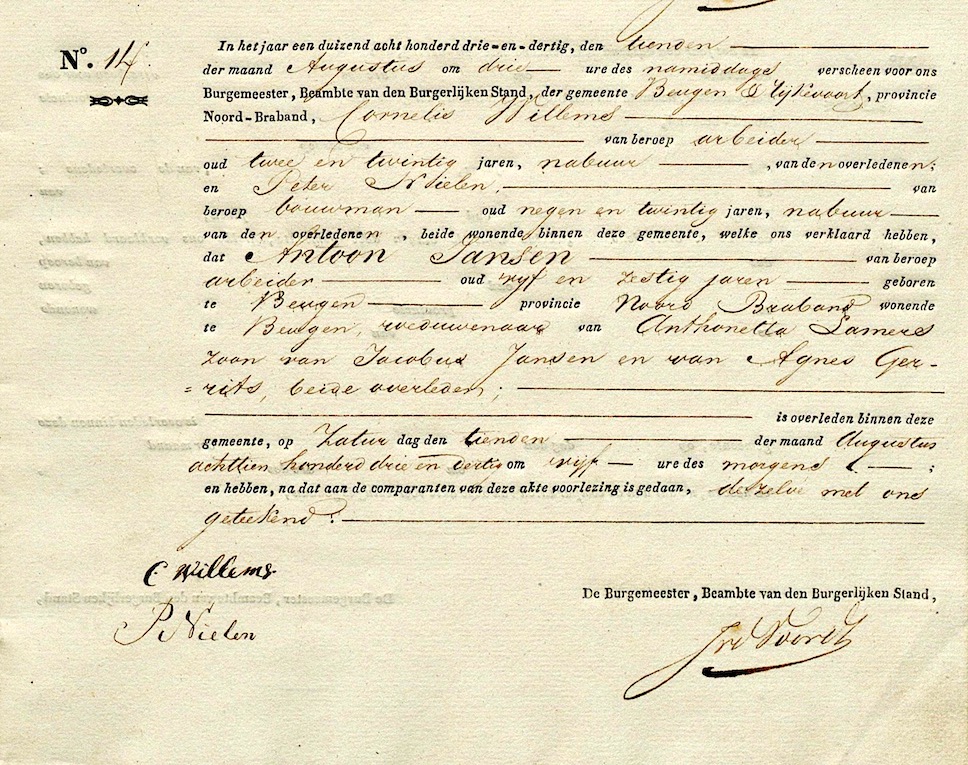 N.º 14.
In het jaar een duizend acht honderd drie-en-dertig, den tienden
der maand Augustus om drie ure des namiddags verscheen voor ons
Burgemeester, Beambte van den Burgerlijken Stand, der gemeente Beugen & Rijkevoort, provincie
Noord-Braband, Cornelis Willems
van beroep arbeider
oud twee en twintig jaren, nabuur, van den overledenen;
en Peter Nielen, van
beroep bouwman oud negen en twintig jaren, nabuur
van den overledenen, beide wonende binnen deze gemeente, welke ons verklaard hebben,
dat Antoon Jansen van beroep
arbeider oud vijf en zestig jaren geboren
te Beugen provincie Noord Braband wonende
te Beugen, weduwenaar van Anthonetta Lamers
zoon van Jacobus Jansen en van Agnes Ger-
=rits, beide overleden;
is overleden binnen deze
gemeente, op Zatur dag den tienden der maand Augustus
achttien honderd drie en dertig om vijf ure des morgens;
en hebben, na dat aan de comparanten van deze akte voorlezing is gedaan, dezelve met ons
geteekend.
C Willems.
P Nielen
De Burgemeester, Beambte van den Burgerlijken Stand,